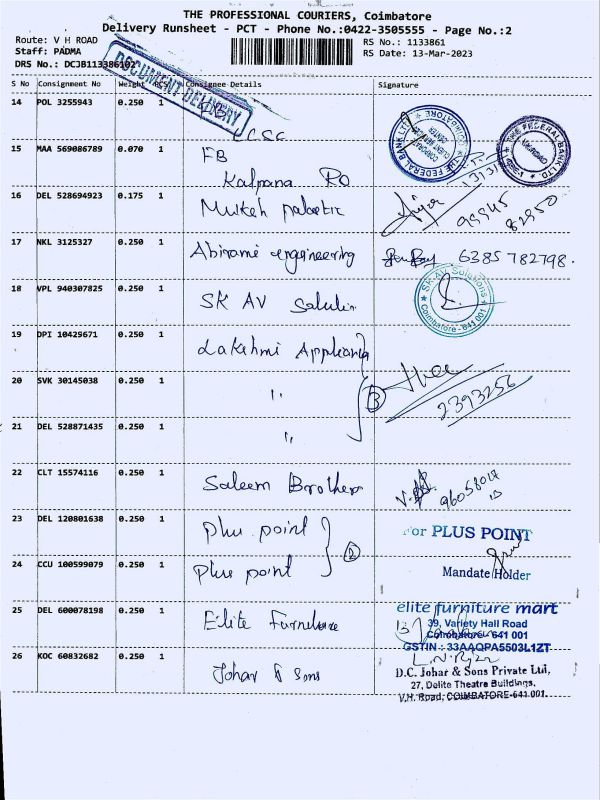 THE PROFESSIONAL COURIERS, Coimbatore
Delivery Runsheet - PCT - Phone No.:0422-3505555 - Page No.:2
Route: V H ROAD
RS No.: 1133861
Staff: PADMA
RS Date: 13-Mar-2023
DRS No.: DCJB113386102
DOCUMENT DELIVERY
S No Consignment No Weight PCS Consignee Details Signature
14 POL 3255943 0.250 1
CSC
15 MAA 569086789 0.070 1 FB
Kalpana RO
THE FEDERAL BANK LTD
COIMBATORE
THE FEDERAL BANK LTD.
16 DEL 528694923 0.175 1
99945
82950
17 NKL 3125327 0.250 1 Abirami engineering 6385 782798.
18 VPL 940307825 0.250 1 SK AV
SK AV Solutions
Coimbatore - 641 001
19 DPI 10429671 0.250 1 Lakshmi
20 SVK 30145038 0.250 1 "
3
2393256
21 DEL 528871435 0.250 1 "
22 CLT 15574116 0.250 1 Saleem Brother
23 DEL 120801638 0.250 1 plus point
For PLUS POINT
2
24 CCU 100599079 0.250 1 plus point
Mandate Holder
25 DEL 600078198 0.250 1 Elite Furniture
elite furniture mart
39, Variety Hall Road
Coimbatore - 641 001
GSTIN : 33AAQPA5503L1ZT
26 KOC 60832682 0.250 1 Johar & Sons
D.C. Johar & Sons Private Ltd,
27, Delite Theatre Buildings,
V.H. Road, COIMBATORE-641 001.